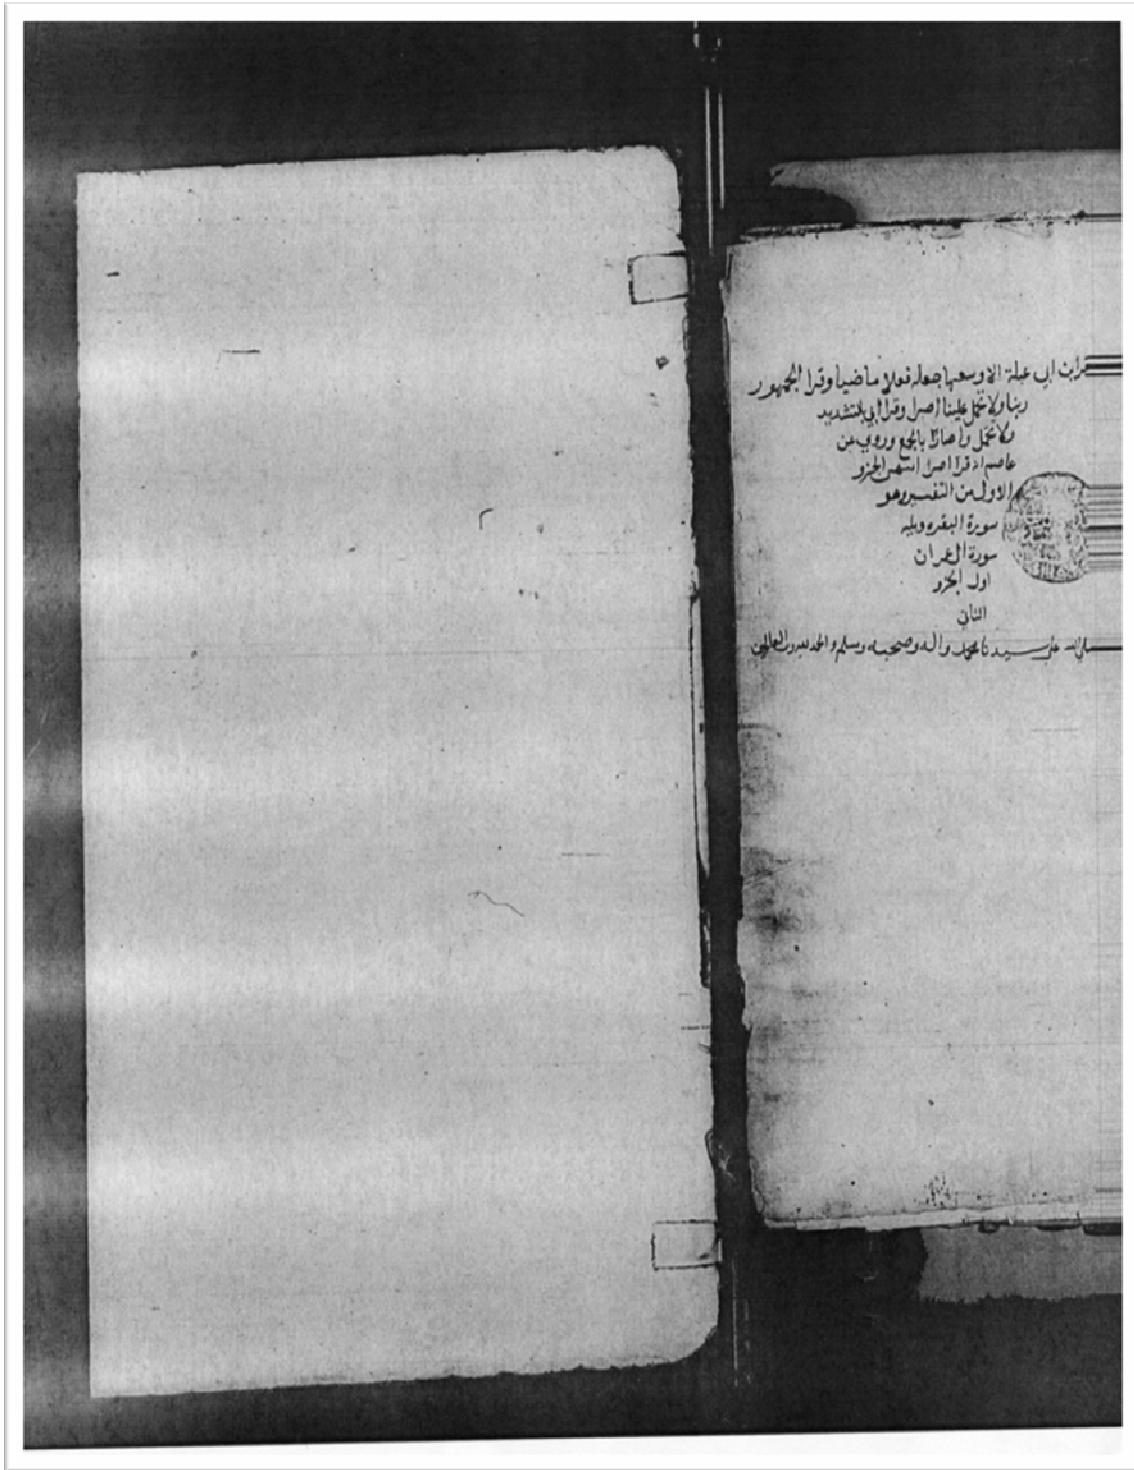 ابن ابي عبلة الا وسعها جعله فعلا ماضيا وقرا الجمهور
ربنا ولا تحمل علينا اصرا وقرا ابي بالتشديد
ولا تحمل واصارا بالجمع وروي عن
عاصم انه قرا اصرا انتهى الجزو
الاول من التفسير وهو
سورة البقره ويليه
سورة ال عمران
اول الجزو
الثاني
الله على سيدنا محمد واله وصحبه وسلم والحمد لله رب العالمين